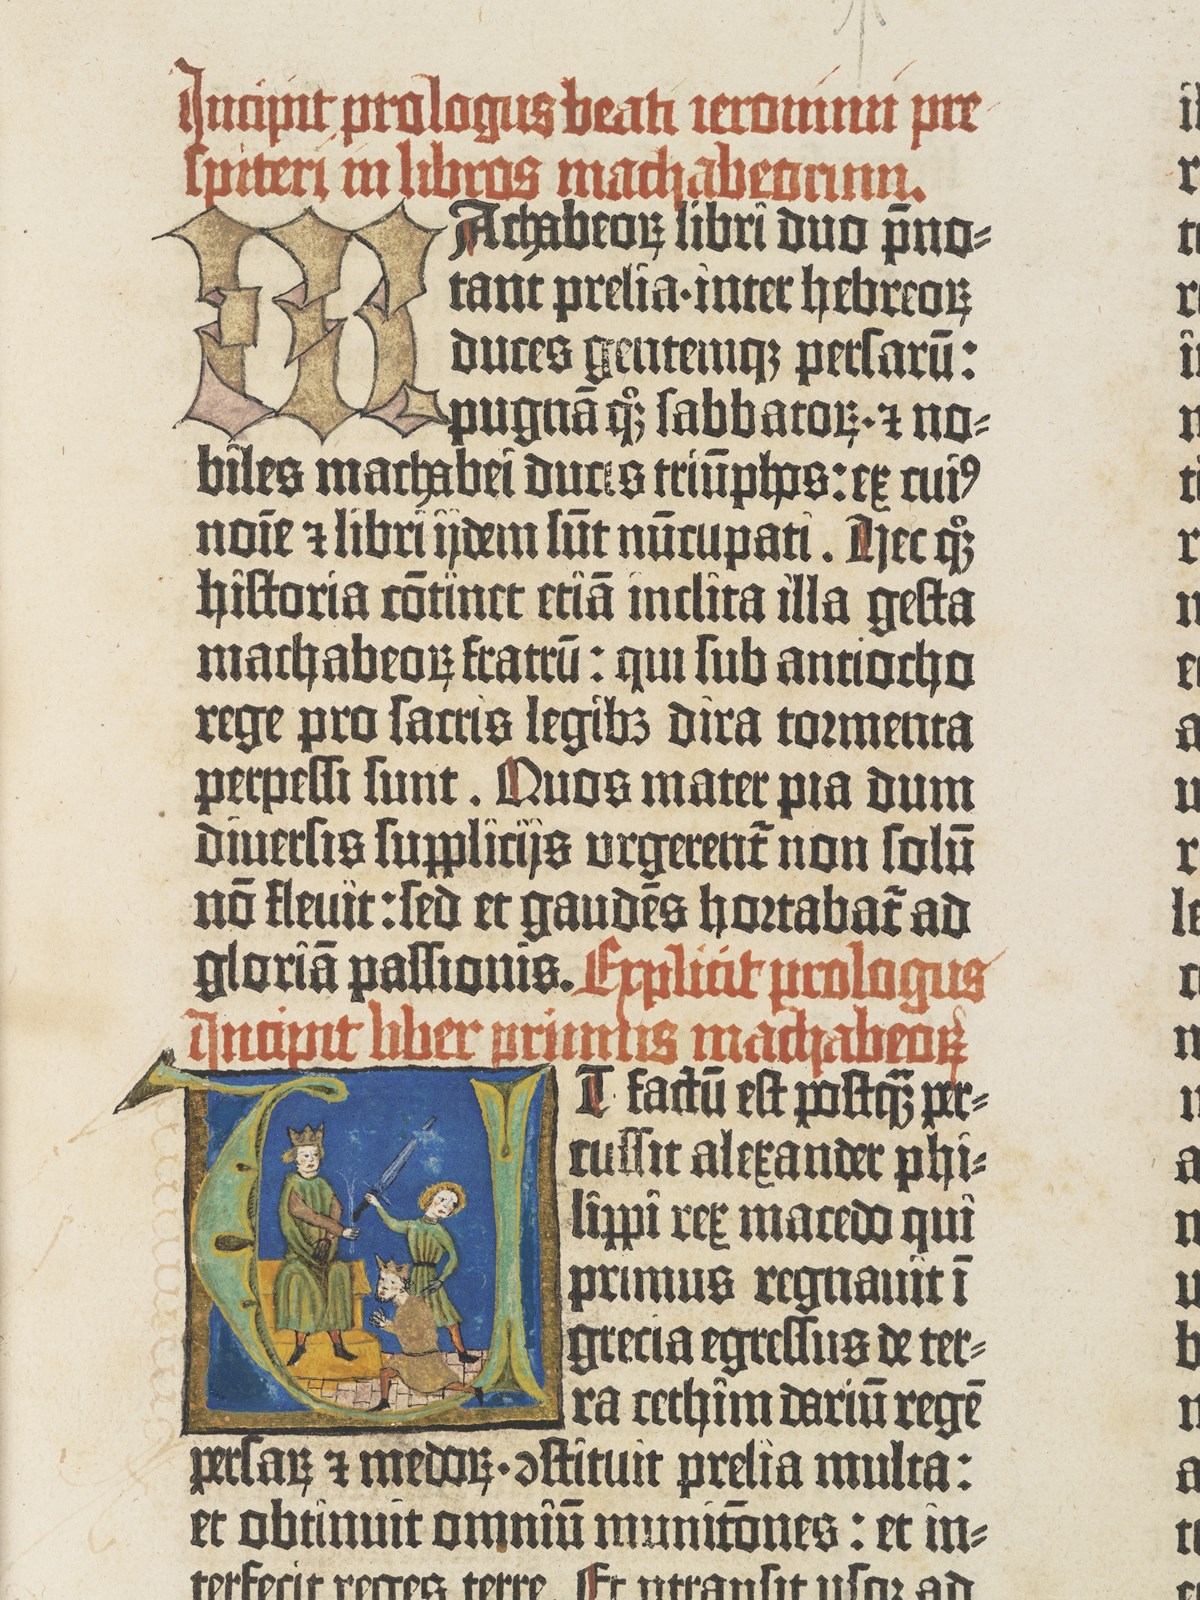 Incipit prologus beati ieronimi pre
spiteri in libros machabeorum.
MAchabeoꝝ libri duo p̄no⸗
tant prelia·inter hebreoꝝ
duces gentemqꝫ persarū:
pugnā qͦꝫ sabbatoꝝ·⁊ no⸗
biles machabei ducis triūphꝰs: ex cuiꝰ
noīe ⁊ libri ijdem sūt nūcupati. Nec qͦꝫ
historia cōtinet etiā inclita illa gesta
machabeoꝝ fratrū: qui sub antiocho
rege pro sacris legibꝫ dira tormenta
perpessi sunt. Quos mater pia dum
diuersis supplicijs vrgerent᷑ non solū
nō fleuit: sed et gaudēs hortabat᷑ ad
gloriā passionis. Explicit prologus
Incipit liber primus machabeoꝝ
ET factū est postqꝫ̄ per⸗
cussit alexander phi⸗
lippi rex macedo qui
primus regnauit ī
grecia egressus de ter⸗
ra cethim dariū regē
persaꝝ ⁊ medoꝝ·ↄstituit prelia multa:
et obtinuit omniū munitōnes: et in⸗
terfecit reges terre. Et ptransit vsqꝫ ad